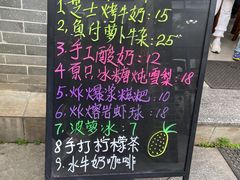 1.芝士烤牛奶:15
2.負付萝卜牛杂:25
3.手工酸奶:12
4.負只冰糖炖雪梨:18
5.火火爆浆糍粑:10
6.火火熔岩虾球:18
7.菠萝冰:7
8手打柠檬茶
9.水牛奶咖啡